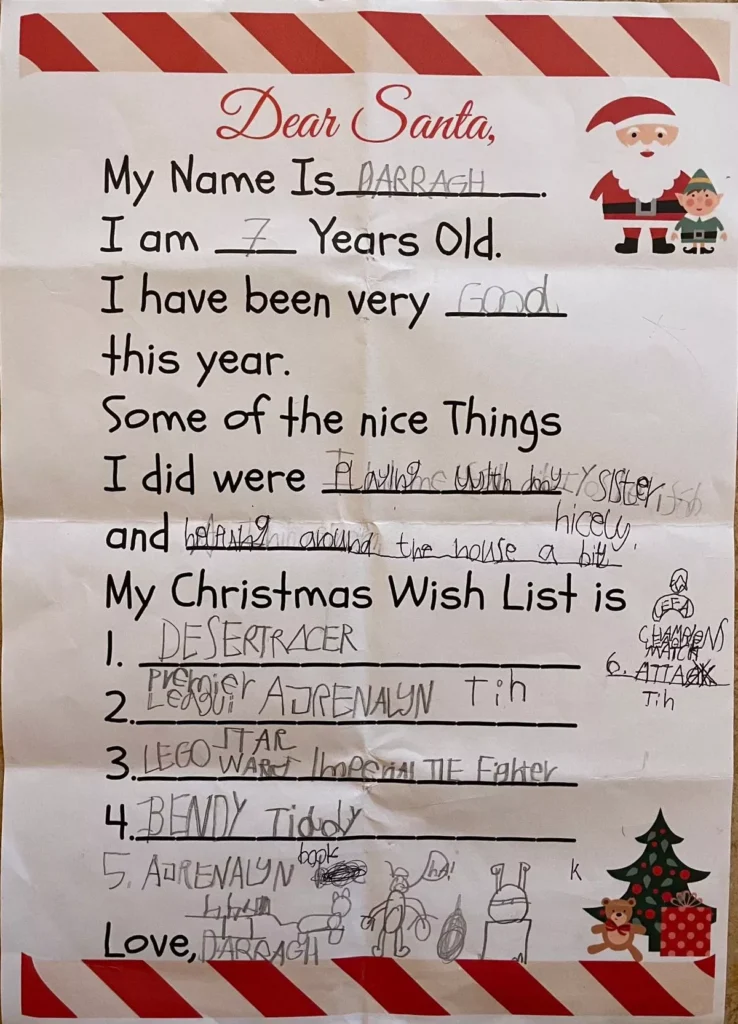 Dear Santa,
My Name Is DARRAGH.
I am 7 Years Old.
I have been very Good
this year.
Some of the nice Things
I did were Playing with my sister
nicely,
and helping around the house a bit
My Christmas Wish List is
1. DESERTRACER
2. PREMIER LEAGUE ADRENALYN Tin
3. LEGO STAR WARS Imperial TIE Fighter
4. BENDY Tiddy
5. ADRENALYN book
6. CHAMPIONS
MATCH
ATTAX
Tin
ha!
k
Love, DARRAGH